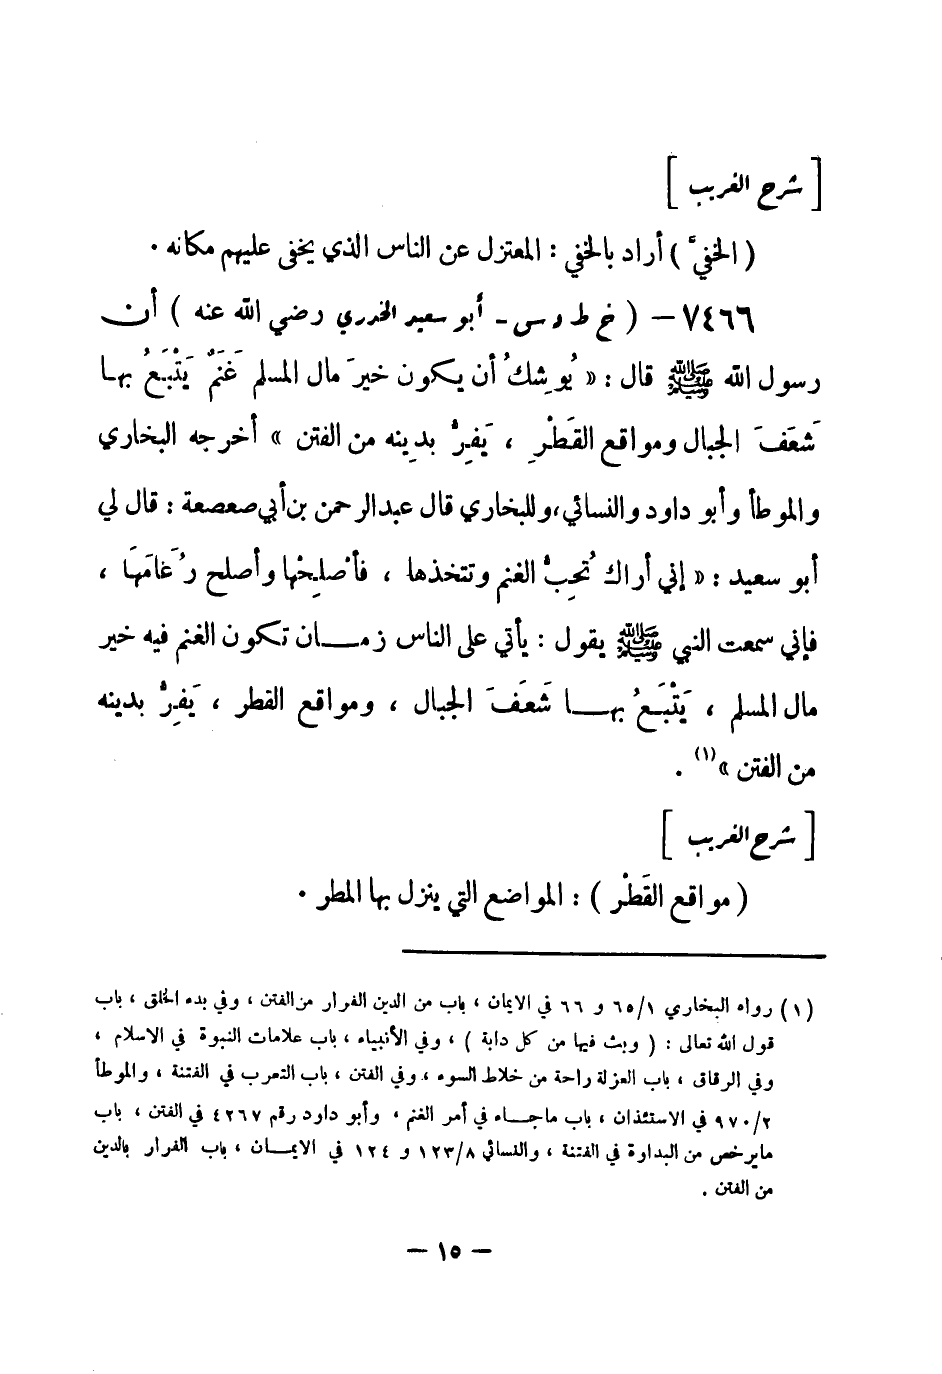 [ شرح الغريب ]
( الخفيّ ) أراد بالخفي : المعتزل عن الناس الذي يخفى عليهم مكانه .
٧٤٦٦ – ( خ ط د س - أبو سعيد الخدري رضي الله عنه ) أن
رسول الله ﷺ قال : « يُوشِكُ أن يكون خيرَ مال المسلم غَنَمٌ يَتْبَعُ بها
شَعَفَ الجبال ومواقع القَطْرِ ، يَفِرُّ بدِينه من الفتن » أخرجه البخاري
والموطأ وأبو داود والنسائي ، وللبخاري قال عبدالرحمن بن أبي صعصعة : قال لي
أبو سعيد : « إني أراك تُحِبُّ الغنم وتتخذها ، فأصْلِحْها وأصلح رُغَامَهَا ،
فإني سمعت النبي ﷺ يقول : يأتي على الناس زمان تكون الغنم فيه خير
مال المسلم ، يَتْبَعُ بها شَعَفَ الجبال ، ومواقع القطر ، يَفِرُّ بدينه
من الفتن »(١) .
[ شرح الغريب ]
( مواقع القَطْر ) : المواضع التي ينزل بها المطر .
(١) رواه البخاري ٦٥/١ و ٦٦ في الايمان ، باب من الدين الفرار من الفتن ، وفي بدء الخلق ، باب
قول الله تعالى : ( وبث فيها من كل دابة ) ، وفي الأنبياء ، باب علامات النبوة في الاسلام ،
وفي الرقاق ، باب العزلة راحة من خلاط السوء ، وفي الفتن ، باب التعرب في الفتنة ، والموطأ
٩٧٠/٢ في الاستئذان ، باب ماجاء في أمر الغنم ، وأبو داود رقم ٤٢٦٧ في الفتن ، باب
مايرخص من البداوة في الفتنة ، والنسائي ١٢٣/٨ و ١٢٤ في الايمان ، باب الفرار بالدين
من الفتن .
– ١٥ –